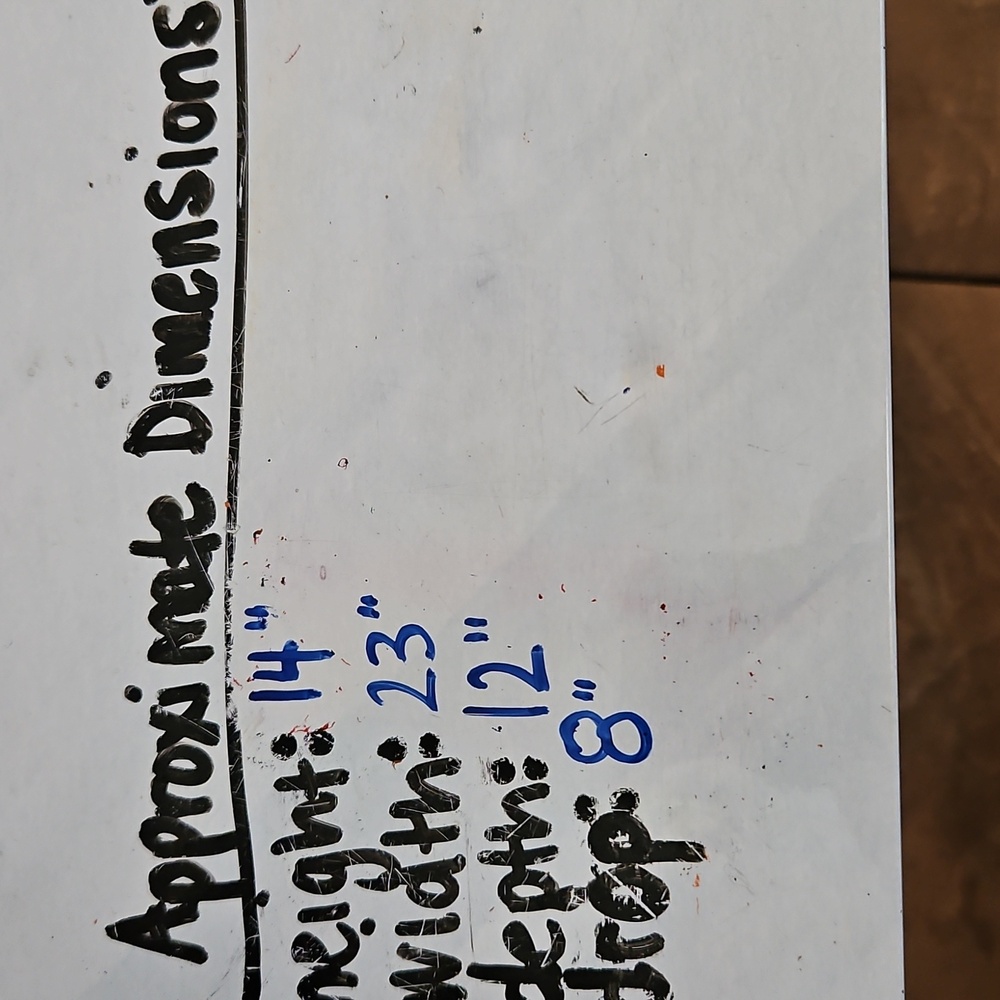 Approximate Dimensions
height: 14"
width: 23"
depth: 12"
drop: 8"